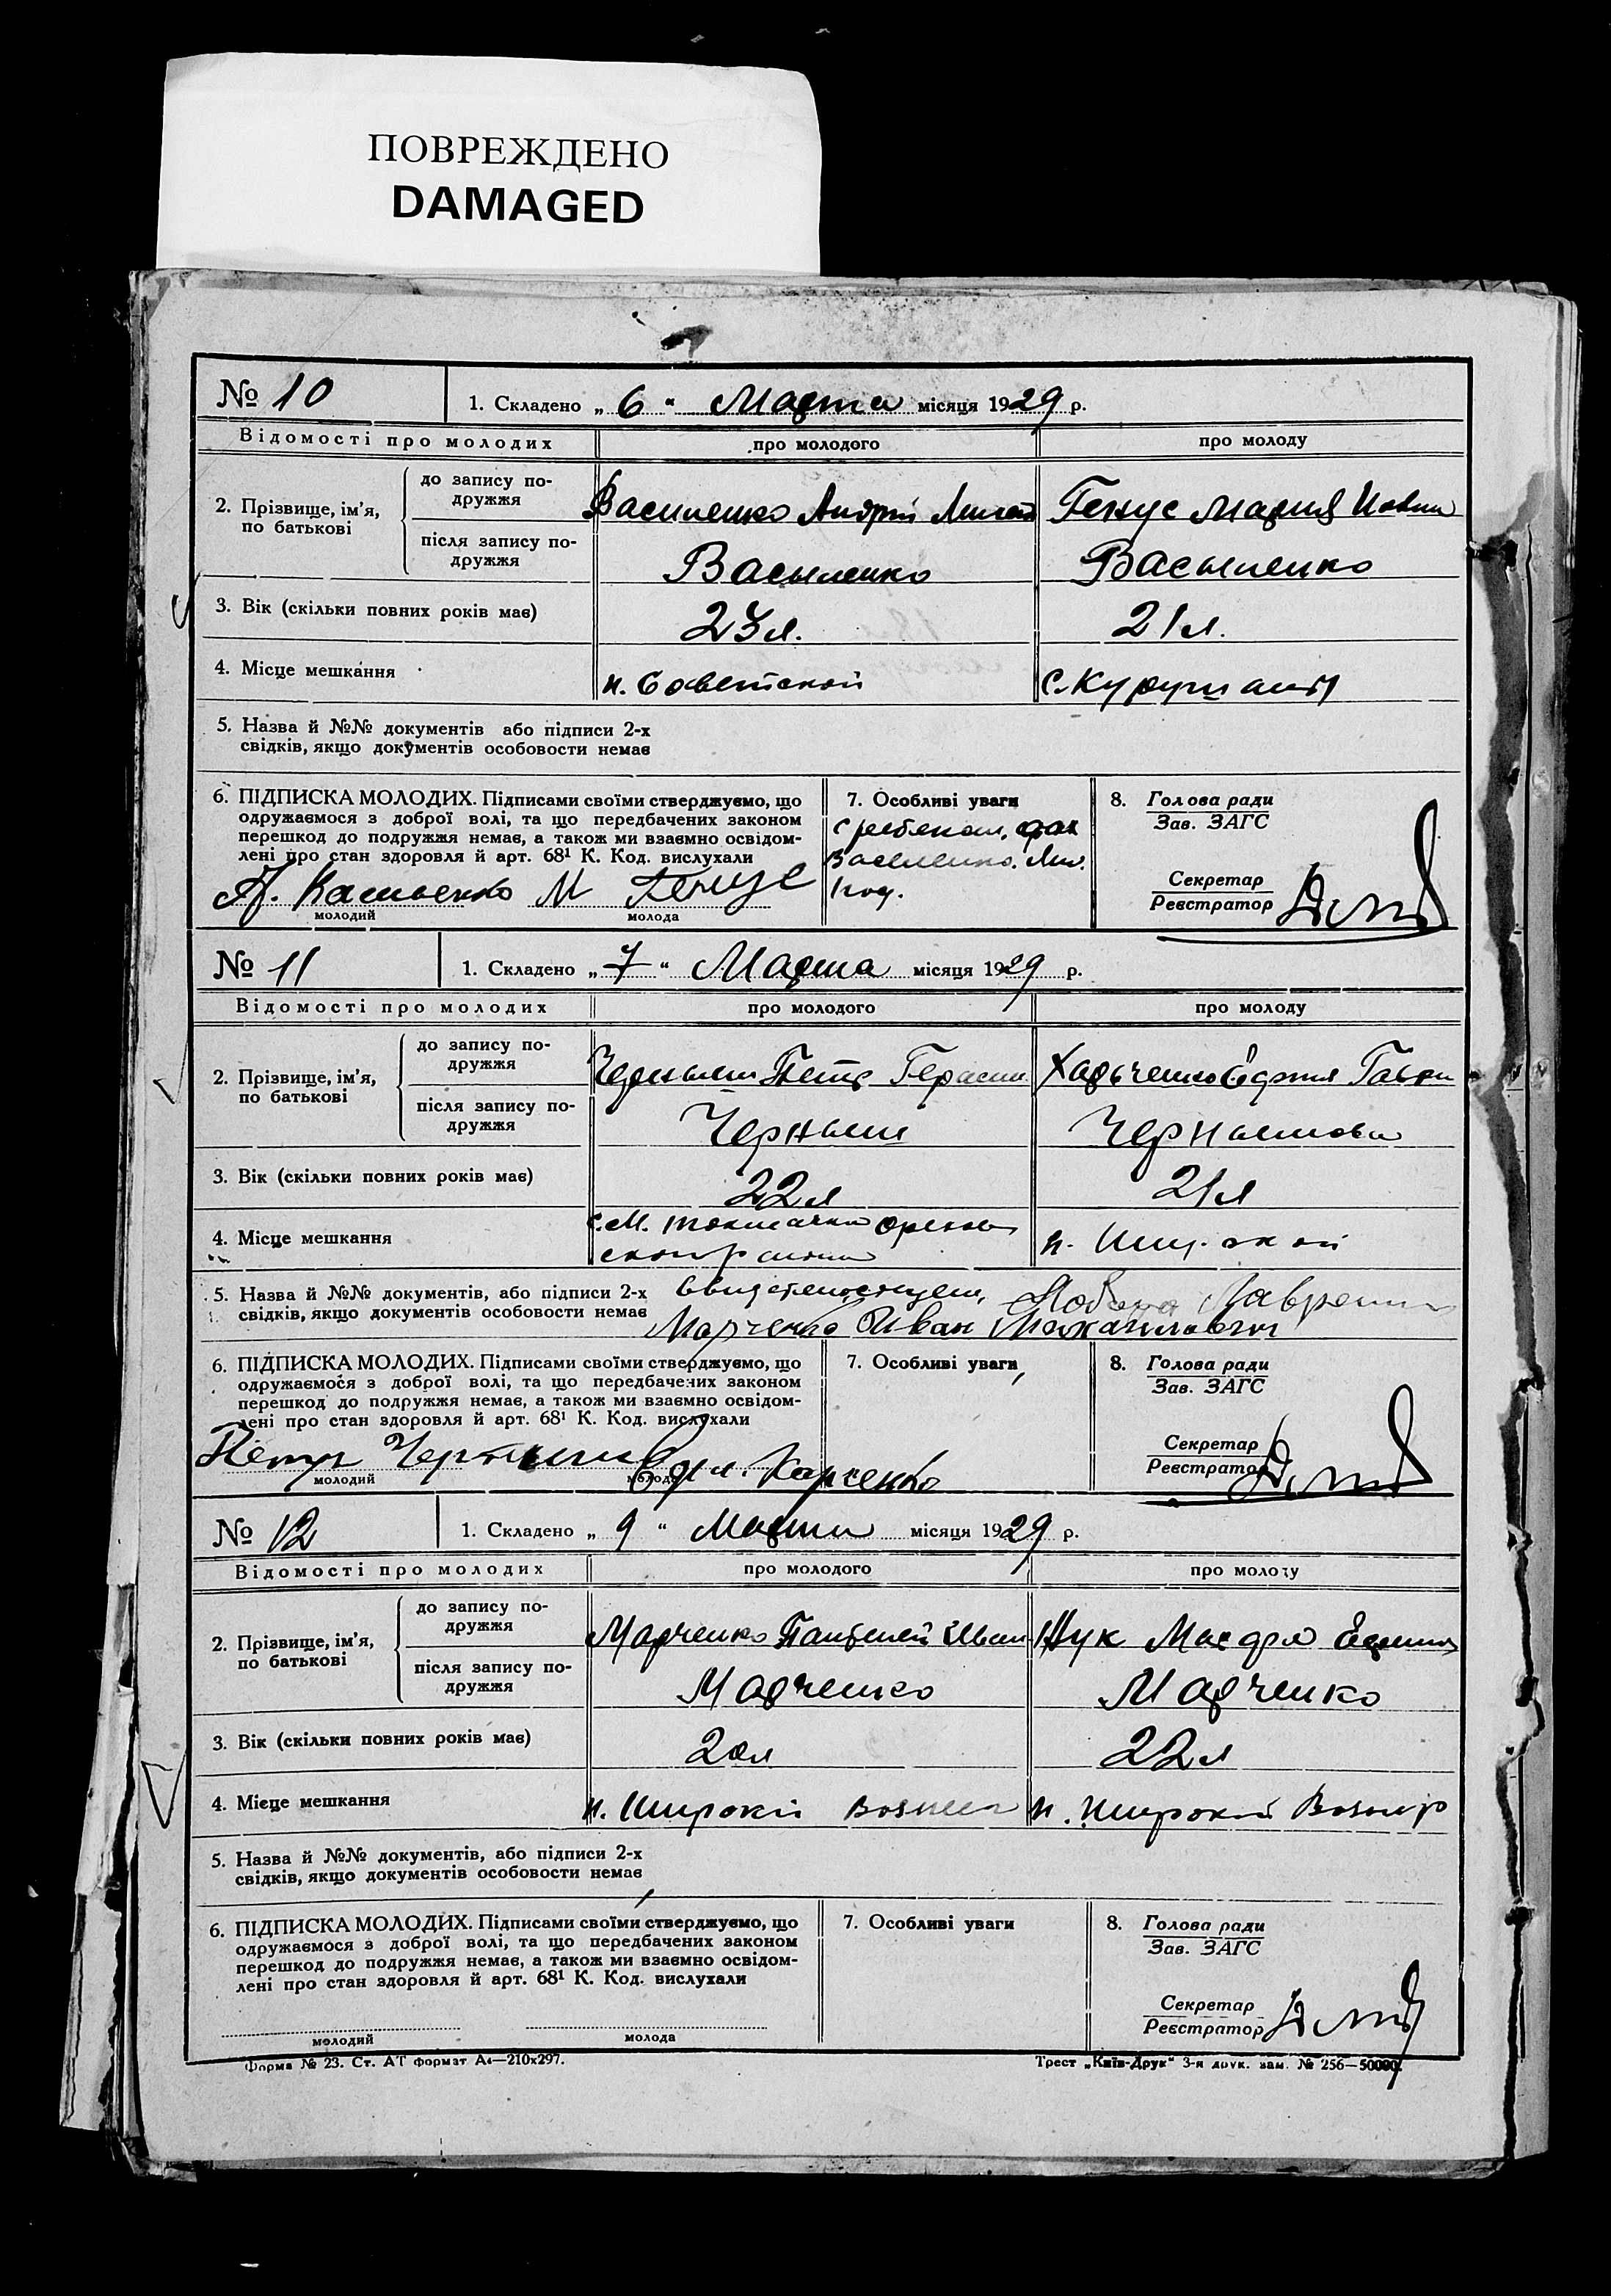 ПОВРЕЖДЕНО
DAMAGED
№ 10
1. Складено „ 6 “ Марта місяця 1929 р.
Відомості про молодих
про молодого
про молоду
2. Прізвище, ім'я, по батькові
до запису подружжя
Василенко Андрій
Генус Мария
після запису подружжя
Васыленко
Васыленко
3. Вік (скільки повних років має)
23 л.
21 л.
4. Місце мешкання
п. Советской
с.
5. Назва й №№ документів або підписи 2-х
свідків, якщо документів особовости немає
6. ПІДПИСКА МОЛОДИХ. Підписами своїми стверджуємо, що
одружаємося з доброї волі, та що передбачених законом
перешкод до подружжя немає, а також ми взаємно освідом-
лені про стан здоровля й арт. 68¹ К. Код. вислухали
М Генус
молодий
молода
7. Особливі уваги
с ребенком.
Василенко.
8. Голова ради
Зав. ЗАГС
Секретар
Реєстратор
№ 11
1. Складено „ 7 “ Марта місяця 1929 р.
Відомості про молодих
про молодого
про молоду
2. Прізвище, ім'я, по батькові
до запису подружжя
Черныш Петр Герасим
Харьченко
після запису подружжя
Черныш
Чернышова
3. Вік (скільки повних років має)
22 л
21 л
4. Місце мешкання
с. М. Токмачки
п.
5. Назва й №№ документів, або підписи 2-х
свідків, якщо документів особовости немає
Марченко Иван
6. ПІДПИСКА МОЛОДИХ. Підписами своїми стверджуємо, що
одружаємося з доброї волі, та що передбачених законом
перешкод до подружжя немає, а також ми взаємно освідом-
лені про стан здоровля й арт. 68¹ К. Код. вислухали
молодий
молода
7. Особливі уваги
8. Голова ради
Зав. ЗАГС
Секретар
Реєстратор
№ 12
1. Складено „ 9 “ Марта місяця 1929 р.
Відомості про молодих
про молодого
про молоду
2. Прізвище, ім'я, по батькові
до запису подружжя
Марченко Пантелей Иван
після запису подружжя
Марченко
Марченко
3. Вік (скільки повних років має)
20 л
22 л
4. Місце мешкання
п. Широкій
п. Широкой
5. Назва й №№ документів, або підписи 2-х
свідків, якщо документів особовости немає
6. ПІДПИСКА МОЛОДИХ. Підписами своїми стверджуємо, що
одружаємося з доброї волі, та що передбачених законом
перешкод до подружжя немає, а також ми взаємно освідом-
лені про стан здоровля й арт. 68¹ К. Код. вислухали
молодий
молода
7. Особливі уваги
8. Голова ради
Зав. ЗАГС
Секретар
Реєстратор
Форма № 23. Ст. АТ формат А4—210х297.
Трест „Київ-Друк“ 3-я друк. зам. № 256—50000.